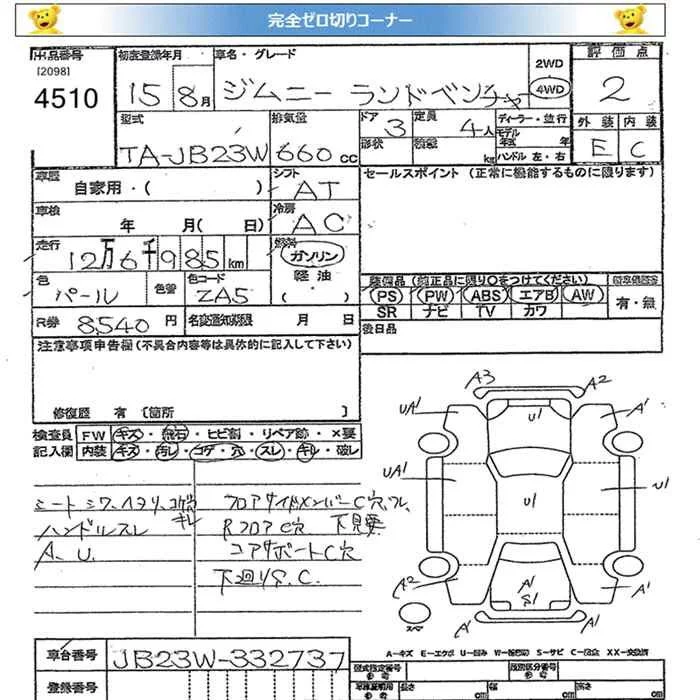 完全ゼロ切りコーナー
出品番号 初度登録年月 車名・グレード 2WD 評価点
[2098]
4510 15 8月 ジムニー ランドベンチャー 4WD 2
型式 排気量 ドア 定員 ディーラー・並行 外装 内装
TA-JB23W 660cc 3 4人 モデル年式 年 E C
形状 積載 kg ハンドル 左・右
車歴 自家用・( ) シフト AT セールスポイント (正常に機能するものに限ります)
車検 年 月( 日) 冷房 AC
走行 12万6千985km 燃料 ガソリン
軽油
・( )
色 パール 色替 色コード ZA5 装備品 (純正品に限り○をつけてください)
PS PW ABS エアB AW 有・無
SR ナビ TV カワ
R券 8,540円 名変通知期限 月 日 後日品
注意事項申告欄 (不具合内容等は具体的に記入して下さい)
修復歴 有 [箇所 ]
検査員 FW キズ・飛石・ヒビ割・リペア跡・×要
記入欄 内装 キズ・汚レ・コゲ・穴・スレ・キレ・破レ
シート シワ、ヘタリ、コゲ穴 キレ
ハンドルスレ
A、U.
フロアサイドメンバーC穴
RフロアC穴 下見要
コアサポートC穴
下廻りS.C.
A3 A2
UA1 U1 A1
UA1 U1 U1
A2 A1 S1 A1
A1 A1
スペア
A-キズ E-エクボ U-凹み W-補修跡 S-サビ C-腐食 XX-交換済
車台番号 JB23W-332737
登録番号
型式指定番号 参考 類別区分番号 参考
長さ cm 幅 cm 高さ cm